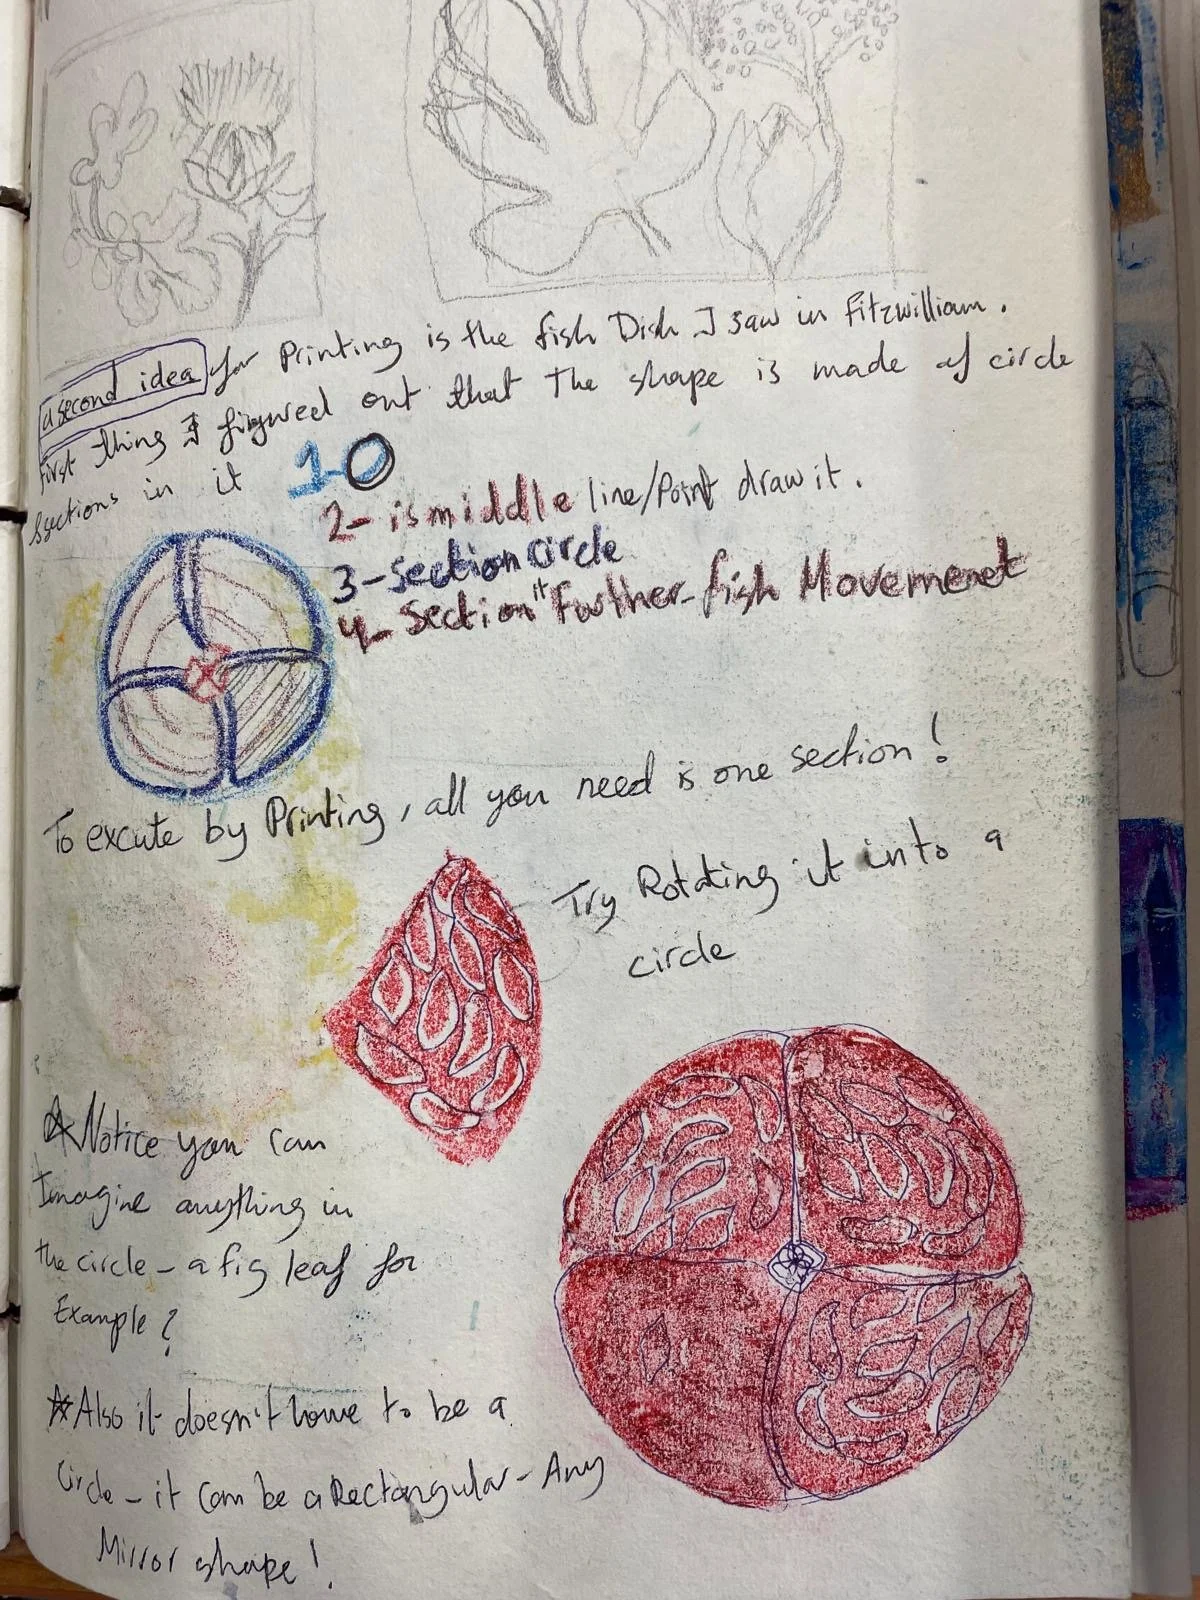 a second idea for Printing is the fish Dish I saw in Fitzwilliam.
first thing I figured out that the shape is made of circle
sections in it 1-O
2- is middle line/Point draw it.
3-section circle
4- Section it Further-fish Movemenet
To excute by Printing, all you need is one section!
Try Rotating it into a
circle
Notice you can
Imagine anything in
the circle - a fig leaf for
Example?
Also it doesn't have to be a
Circle - it can be a Rectangular - Any
Mirror shape!